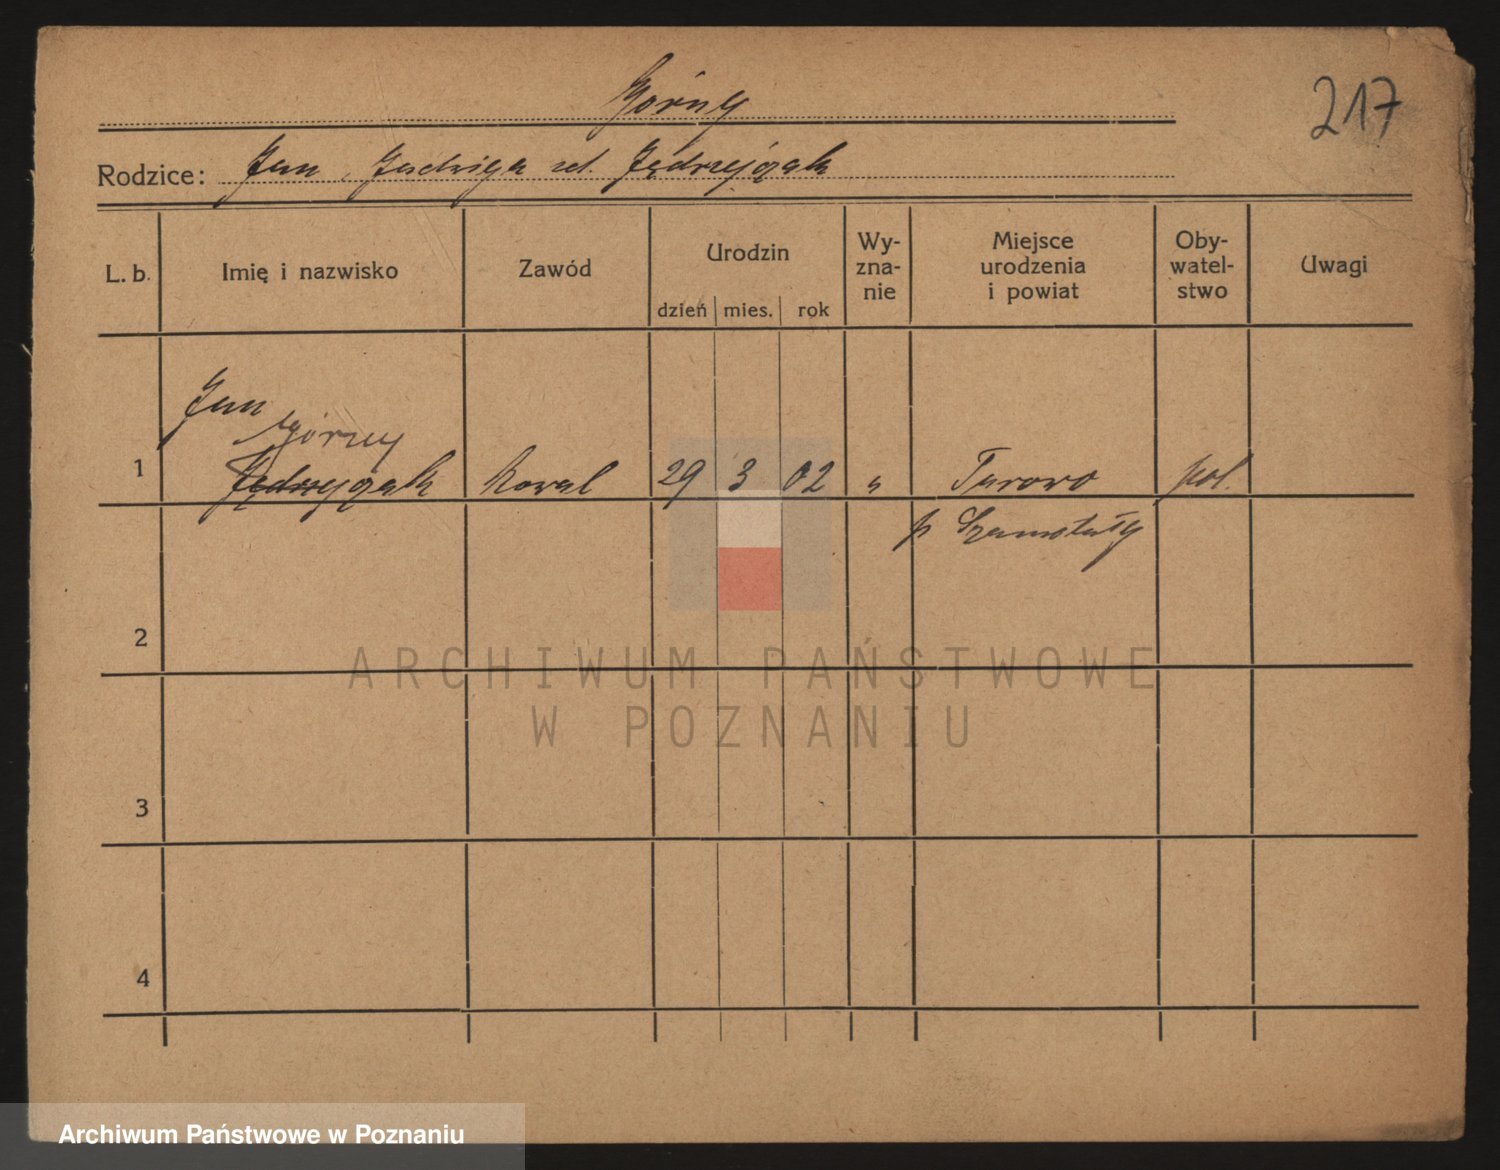 Górny
217
Rodzice: Jan, Jadwiga zd. Jędrzejczak
L. b.
Imię i nazwisko
Zawód
Urodzin
dzień mies. rok
Wy-
zna-
nie
Miejsce
urodzenia
i powiat
Oby-
watel-
stwo
Uwagi
Jan
Górny
1 Jędrzejczak Kowal 29 3 02 " Turowo pol.
p Szamotuły
2
3
4
ARCHIWUM PAŃSTWOWE
W POZNANIU
Archiwum Państwowe w Poznaniu